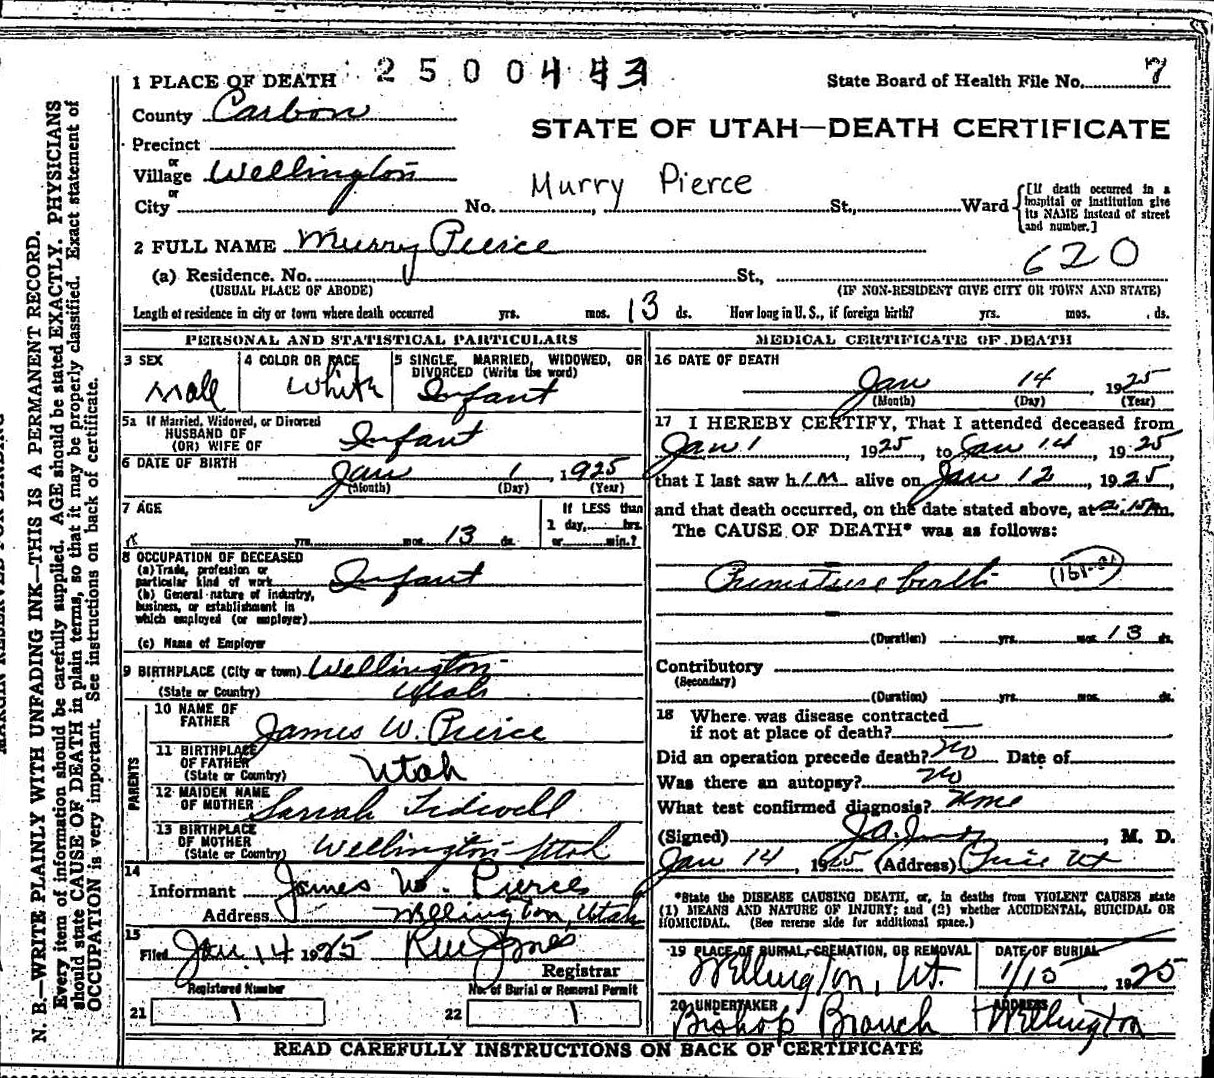 1 PLACE OF DEATH 2500443 State Board of Health File No. 7
County Carbon
STATE OF UTAH—DEATH CERTIFICATE
Precinct
or
Village Wellington
Murry Pierce
or
City No. , St., Ward
[If death occurred in a hospital or institution give its NAME instead of street and number.]
2 FULL NAME Murry Pierce
620
(a) Residence. No. St.,
(USUAL PLACE OF ABODE) (IF NON-RESIDENT GIVE CITY OR TOWN AND STATE)
Length of residence in city or town where death occurred yrs. mos. 13 ds. How long in U. S., if foreign birth? yrs. mos. ds.
PERSONAL AND STATISTICAL PARTICULARS
3 SEX Male
4 COLOR OR RACE White
5 SINGLE, MARRIED, WIDOWED, OR DIVORCED (Write the word) Infant
5a If Married, Widowed, or Divorced
HUSBAND OF
(OR) WIFE OF Infant
6 DATE OF BIRTH Jan 1, 1925
(Month) (Day) (Year)
7 AGE yrs. mos. 13 ds.
If LESS than
1 day, hrs.
or min.?
8 OCCUPATION OF DECEASED
(a) Trade, profession or
particular kind of work Infant
(b) General nature of industry,
business, or establishment in
which employed (or employer)
(c) Name of Employer
9 BIRTHPLACE (City or town) Wellington
(State or Country) Utah
PARENTS
10 NAME OF FATHER James W. Pierce
11 BIRTHPLACE OF FATHER (State or Country) Utah
12 MAIDEN NAME OF MOTHER Sarrah Tidwell
13 BIRTHPLACE OF MOTHER (State or Country) Wellington Utah
14
Informant James W. Pierce
Address Wellington, Utah
15
Filed Jan. 14 1925 Jones
Registrar
Registered Number No. of Burial or Removal Permit
21 1 22 1
MEDICAL CERTIFICATE OF DEATH
16 DATE OF DEATH
Jan 14 1925
(Month) (Day) (Year)
17 I HEREBY CERTIFY, That I attended deceased from
Jan 1, 1925, to Jan 14, 1925,
that I last saw hIM alive on Jan 12, 1925,
and that death occurred, on the date stated above, at m.
The CAUSE OF DEATH* was as follows:
Premature birth
(Duration) yrs. mos. 13 ds.
Contributory
(Secondary)
(Duration) yrs. mos. ds.
18 Where was disease contracted
if not at place of death?
Did an operation precede death? No Date of
Was there an autopsy? No
What test confirmed diagnosis? None
(Signed) , M. D.
Jan 14, 1925 (Address) Price Ut
*State the DISEASE CAUSING DEATH, or, in deaths from VIOLENT CAUSES state
(1) MEANS AND NATURE OF INJURY; and (2) whether ACCIDENTAL, SUICIDAL OR
HOMICIDAL. (See reverse side for additional space.)
19 PLACE OF BURIAL, CREMATION, OR REMOVAL DATE OF BURIAL
Wellington, Ut. 1/15, 1925
20 UNDERTAKER ADDRESS
Bishop Branch Wellington
READ CAREFULLY INSTRUCTIONS ON BACK OF CERTIFICATE
N. B.—WRITE PLAINLY WITH UNFADING INK—THIS IS A PERMANENT RECORD.
Every item of information should be carefully supplied. AGE should be stated EXACTLY. PHYSICIANS
should state CAUSE OF DEATH in plain terms, so that it may be properly classified. Exact statement of
OCCUPATION is very important. See instructions on back of certificate.